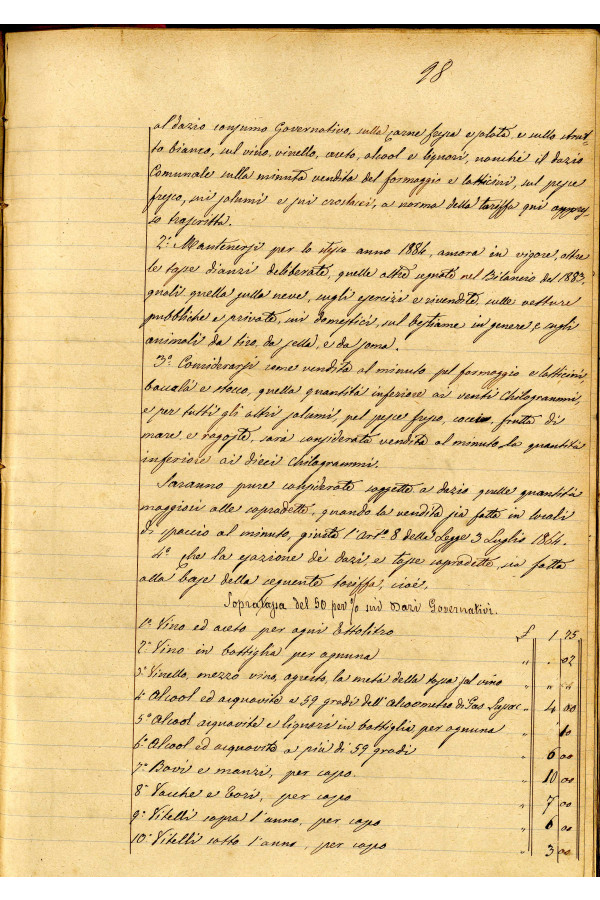 98
al dazio consumo Governativo, sulla Carne fresca e salata, e sullo strut-
to bianco, sul vino, vinello, aceto, alcool e liquori, nonchè il dazio
Comunale sulla minuta vendita del formaggio e latticini, sul pesce
fresco, sui salumi e sui crostacei, a norma della tariffa qui appres-
so trascritta.
2º Mantenersi per lo stesso anno 1884, ancora in vigore, oltre
le tasse dianzi deliberate, quelle altre segnate nel Bilancio del 1883,
quali quella sulla neve, sugli esercizi e rivendite, sulle vetture
pubbliche e private, sui domestici, sul bestiame in genere, e sugli
animali da tiro, da sella, e da soma.
3º Considerarsi come vendita al minuto pel formaggio e latticini,
baccalà e stocco, quella quantità inferiore ai venti chilogrammi,
e per tutti gli altri salumi, pel pesce fresco, frutta di
mare, e ragoste, sarà considerata vendita al minuto la quantità
inferiore ai dieci chilogrammi.
Saranno pure considerate soggette a dazio quelle quantità
maggiori alle sopradette, quando la vendita sia fatta in locali
di spaccio al minuto, giusta l'artº 8 della Legge 3 Luglio 1864.
4º Che la esazione de' dazi e tasse sopradette, sia fatta
alla base della seguente tariffa, cioè.
Sopratassa del 50 per % sui Dazi Governativi.
1º Vino ed aceto per ogni Ettolitro £ 1 75
2º Vino in bottiglia per ognuna " . 02
3º Vinello, mezzo vino, agresto, la metà della tassa sul vino " "
4º Alcool ed acquavite a 59 gradi dell'Alcoometro di Gas " 4 00
5º Alcool acquavite e liquori in bottiglia per ognuna " 10
6º Alcool ed acquavite a più di 59 gradi " 6 00
7º Bovi e manzi, per capo " 10 00
8º Vacche e Tori, per capo " 7 00
9º Vitelli sopra l'anno, per capo " 6 00
10º Vitelli sotto l'anno, per capo " 3 00